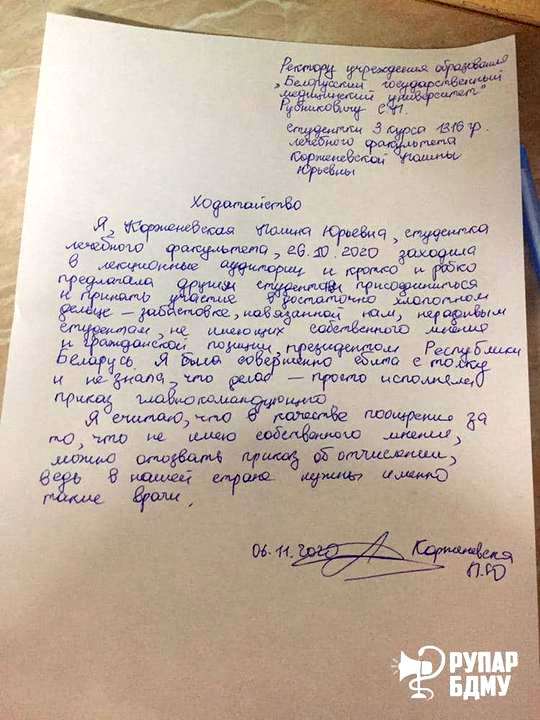 Ректору учреждения образования
„Белорусский государственный
медицинский университет"
Рубниковичу С.П.
студентки 3 курса 1316 гр.
лечебного факультета
Корженевской Полины
Юрьевны
Ходатайство
Я, Корженевская Полина Юрьевна, студентка
лечебного факультета, 26.10.2020 заходила
в лекционные аудитории и кротко и робко
предлагала другим студентам присоединиться
и принять участие в достаточно хлопотном
дельце – забастовке, навязанной нам, нерадивым
студентам, не имеющих собственного мнения
и гражданской позиции, президентом Республики
Беларусь. Я была совершенно сбита с толку
и не знала, что делаю – просто исполняла
приказ главнокомандующего.
Я считаю, что в качестве поощрения за
то, что не имею собственного мнения,
можно отозвать приказ об отчислении,
ведь в нашей стране нужны именно
такие врачи.
06.11.2020 Корженевская
П.Ю
РУПАР
БДМУ